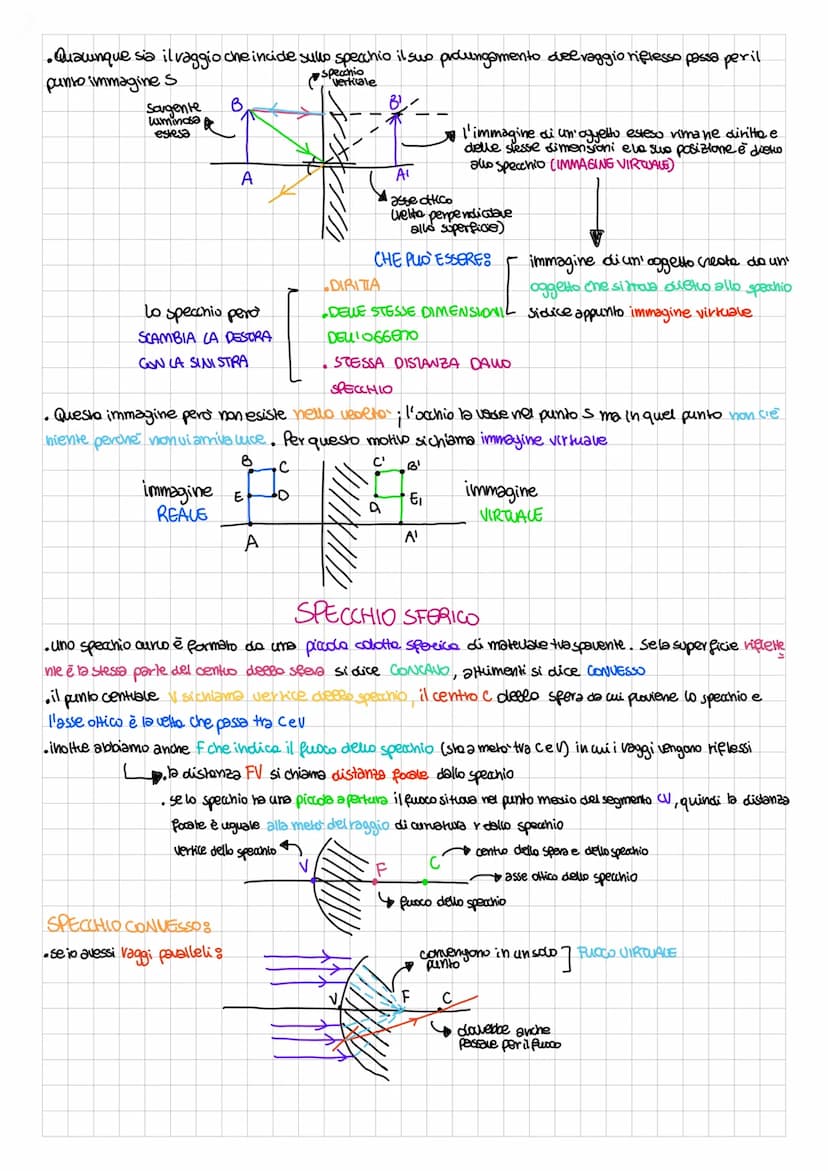 . Qualunque sia il raggio che incide sullo specchio il suo prolungamento del raggio riflesso passa per il
punto immagine S
specchio
verticale
Sorgente
luminosa
estesa
B
B'
A
A'
l'immagine di un'oggetto esteso rimane diritta e
delle stesse dimensioni e la sua posizione è dietro
allo specchio (IMMAGINE VIRTUALE)
asse ottico
(retta perpendicolare
alla superficie)
CHE PUO' ESSERE:
immagine di un'oggetto creata da un'
oggetto che si trova dietro allo specchio
si dice appunto immagine virtuale
.DIRITTA
.DELLE STESSE DIMENSIONI
DELL'OGGETTO
. STESSA DISTANZA DALLO
SPECCHIO
lo specchio però
SCAMBIA LA DESTRA
CON LA SINISTRA
. Questa immagine però non esiste nella realtà ; l'occhio la vede nel punto S ma in quel punto non c'è
niente perchè non vi arriva luce. Per questo motivo si chiama immagine virtuale
B
C
C'
B'
immagine
REALE
E
D
D
E,
immagine
VIRTUALE
A
A'
SPECCHIO SFERICO
.uno specchio curvo è formato da una piccola calotta sferica di materiale trasparente. Se la superficie riflette
nte è la stessa parte del centro della sfera si dice CONCAVO, altrimenti si dice CONVESSO
.il punto centrale V si chiama vertice dello specchio, il centro C della sfera da cui proviene lo specchio e
l'asse ottico è la retta che passa tra C e V
.inoltre abbiamo anche F che indica il fuoco dello specchio (sta a metà tra C e V) in cui i raggi vengono riflessi
.la distanza FV si chiama distanza focale dallo specchio
. se lo specchio ha una piccola apertura il fuoco si trova nel punto medio del segmento CV, quindi la distanza
focale è uguale alla metà del raggio di curvatura r dello specchio
vertice dello specchio
V
F
C
centro della sfera e dello specchio
asse ottico dello specchio
fuoco dello specchio
SPECCHIO CONVESSO:
.se io avessi raggi paralleli:
convengono in un solo
punto
FUOCO VIRTUALE
V
F
C
dovrebbe anche
passare per il fuoco